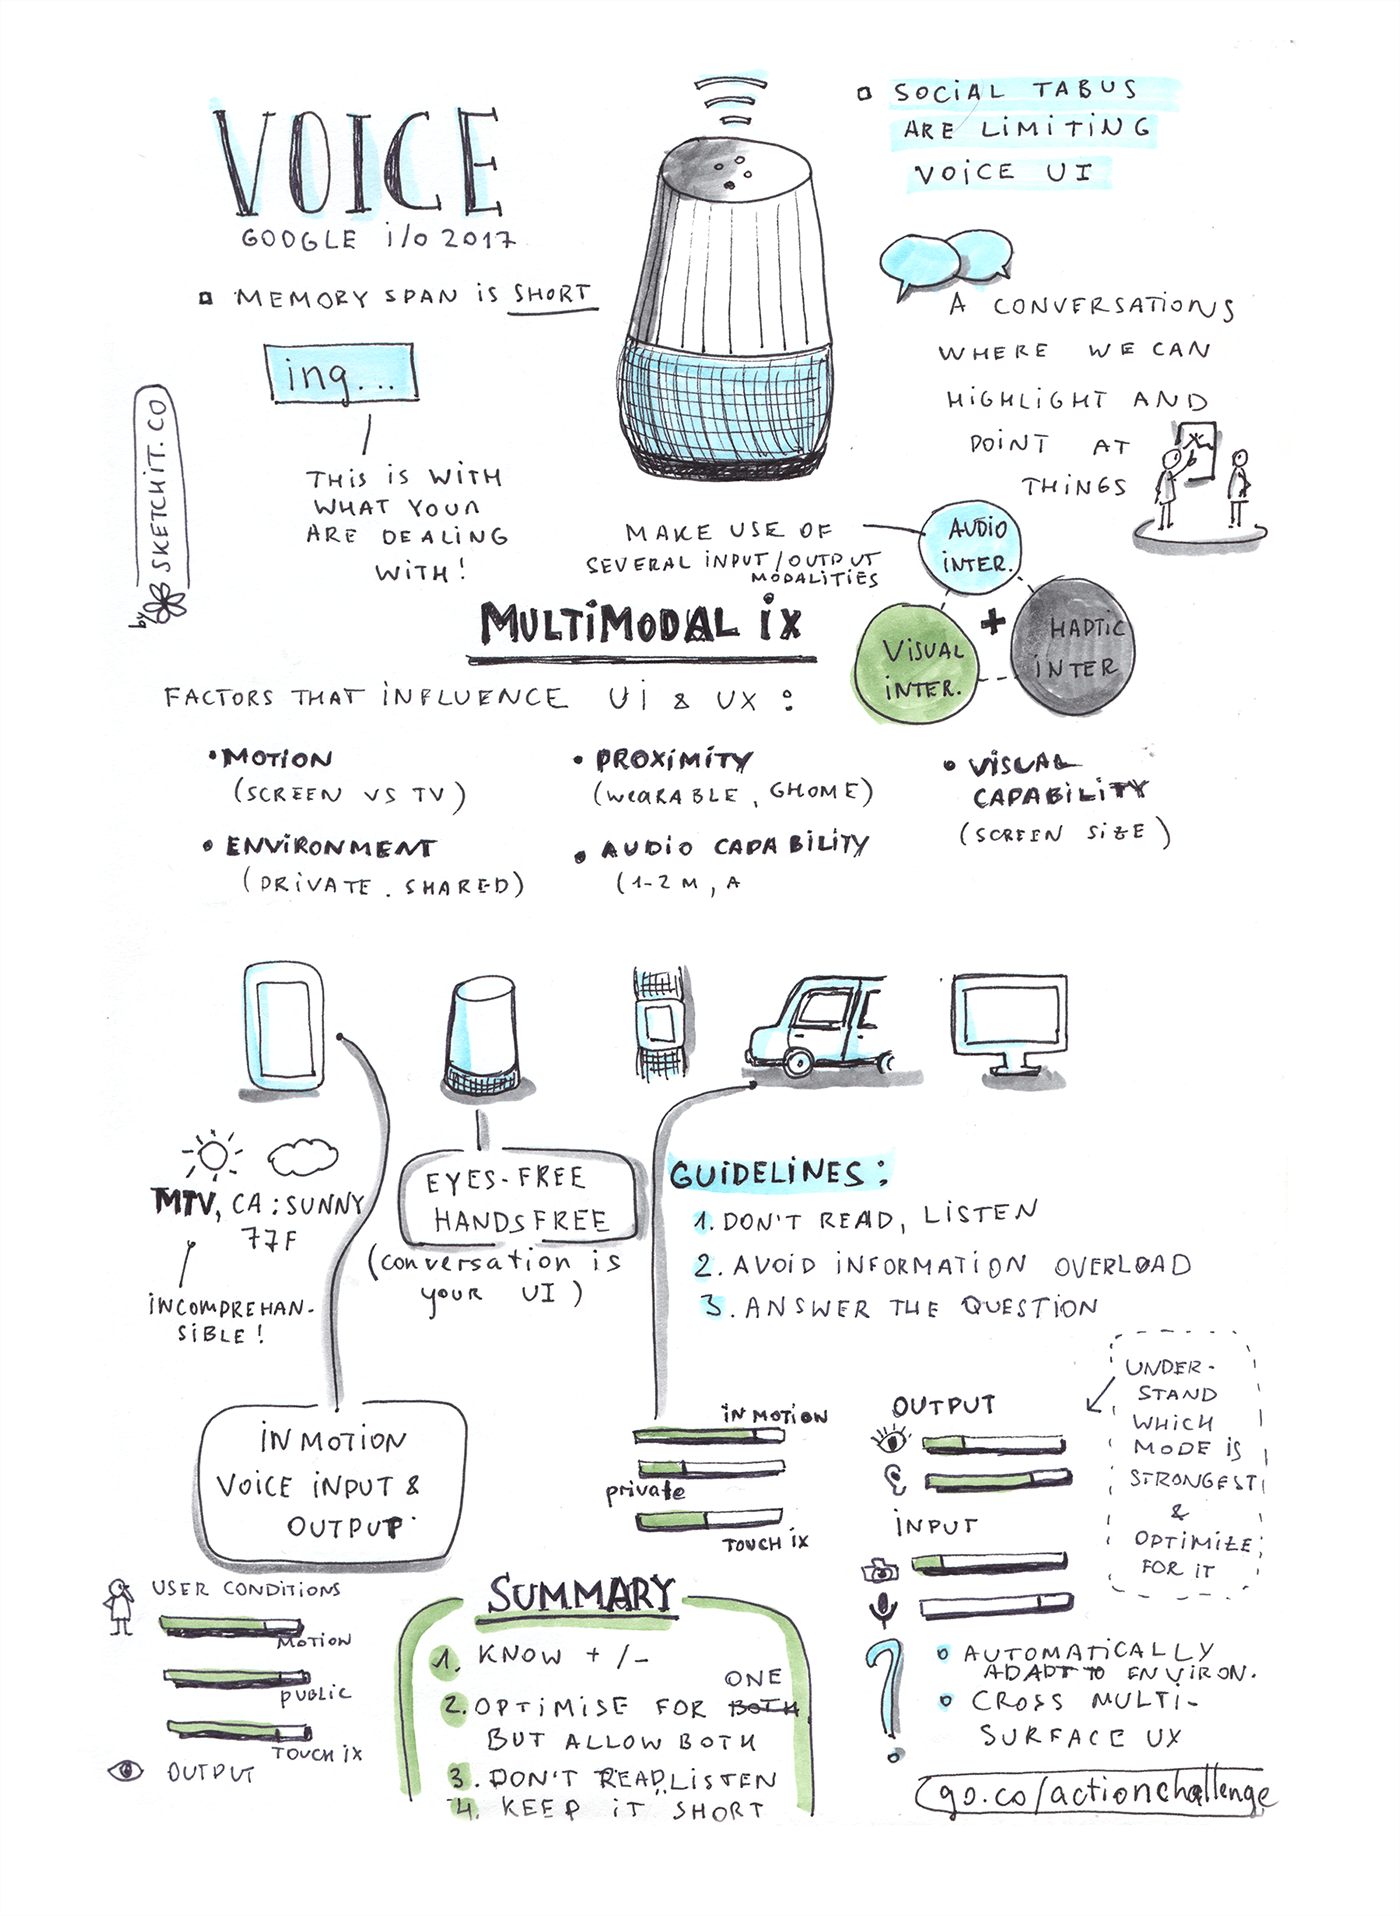 VOICE
GOOGLE i/o 2017
MEMORY SPAN is SHORT
ing...
THIS IS WITH
WHAT YOUR
ARE DEALING
WITH!
by SKETCHIT.CO
SOCIAL TABUS
ARE LIMITING
VOICE UI
A CONVERSATIONS
WHERE WE CAN
HIGHLIGHT AND
POINT AT
THINGS
MAKE USE OF
SEVERAL INPUT/OUTPUT
MODALITIES
AUDIO
INTER.
VISUAL
INTER.
+
HAPTIC
INTER
MULTIMODAL iX
FACTORS THAT INFLUENCE UI & UX:
• MOTION
(SCREEN VS TV)
• ENVIRONMENT
(PRIVATE. SHARED)
• PROXIMITY
(WEARABLE, GHOME)
• AUDIO CAPABILITY
(1-2 M, A
• VISUAL
CAPABILITY
(SCREEN SIZE)
MTV, CA: SUNNY
77F
INCOMPREHAN-
SIBLE!
EYES-FREE
HANDSFREE
(conversation is
your UI)
IN MOTION
VOICE INPUT &
OUTPUT
GUIDELINES:
1. DON'T READ, LISTEN
2. AVOID INFORMATION OVERLOAD
3. ANSWER THE QUESTION
IN MOTION
private
TOUCH iX
OUTPUT
INPUT
UNDER-
STAND
WHICH
MODE IS
STRONGEST
&
OPTIMIZE
FOR IT
USER CONDITIONS
MOTION
PUBLIC
TOUCH iX
OUTPUT
SUMMARY
1. KNOW +/-
2. OPTIMISE FOR BOTH ONE
BUT ALLOW BOTH
3. DON'T READ, LISTEN
4. KEEP IT SHORT
?
AUTOMATICALLY
ADAPT TO ENVIRON.
CROSS MULTI-
SURFACE UX
go.co/actionchallenge